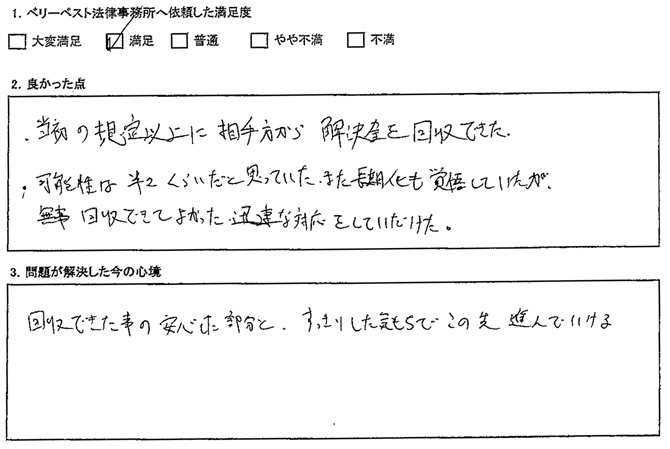 1. ベリーベスト法律事務所へ依頼した満足度
大変満足 満足 普通 やや不満 不満
2. 良かった点
・当初の想定以上に相手方から解決金を回収できた.
・可能性は半々くらいだと思っていた.また長期化も覚悟していたが、
無事回収できてよかった 迅速な対応をしていただけた。
3. 問題が解決した今の心境
回収できた事の安心した部分と、すっきりした気もちでこの先進んでいける